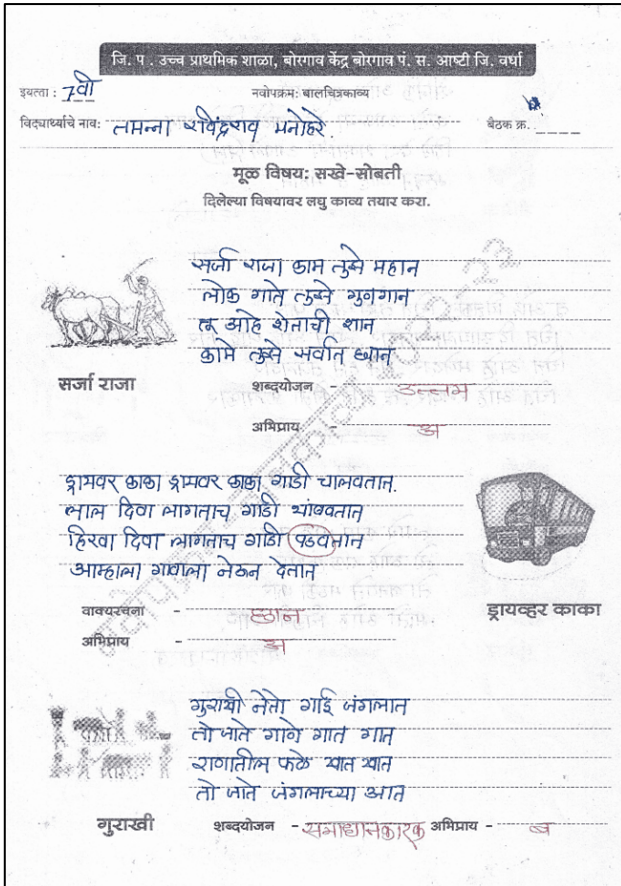 जि. प . उच्च प्राथमिक शाळा, बोरगाव केंद्र बोरगाव पं. स. आष्टी जि. वर्धा
इयत्ता : 7वी नवोपक्रम: बालचित्रकाव्य
विद्यार्थ्याचे नाव: तमन्ना रविंद्रराव मनोहरे. बैठक क्र.
मूळ विषय: सखे-सोबती
दिलेल्या विषयावर लघु काव्य तयार करा.
सर्जा राजा काम तुझे महान
लोक गाते तुझे गुणगान
तू आहे शेताची शान
कामे तुझे सर्वात छान
सर्जा राजा शब्दयोजन - उत्तम
अभिप्राय - अ
ड्रामवर काका ड्रामवर काका गाडी चालवतात.
लाल दिवा लागताच गाडी थांबवतात
हिरवा दिवा लागताच गाडी पडवतात
आम्हाला गावाला नेऊन देतात
वाक्यरचना - छान
ड्रायव्हर काका
अभिप्राय - अ
गुराखी नेतो गाई जंगलात
तो जाते गाणे गात गात
राणातील फळे खात खात
तो जाते जंगलाच्या आत
गुराखी शब्दयोजन - समाधानकारक अभिप्राय - ब